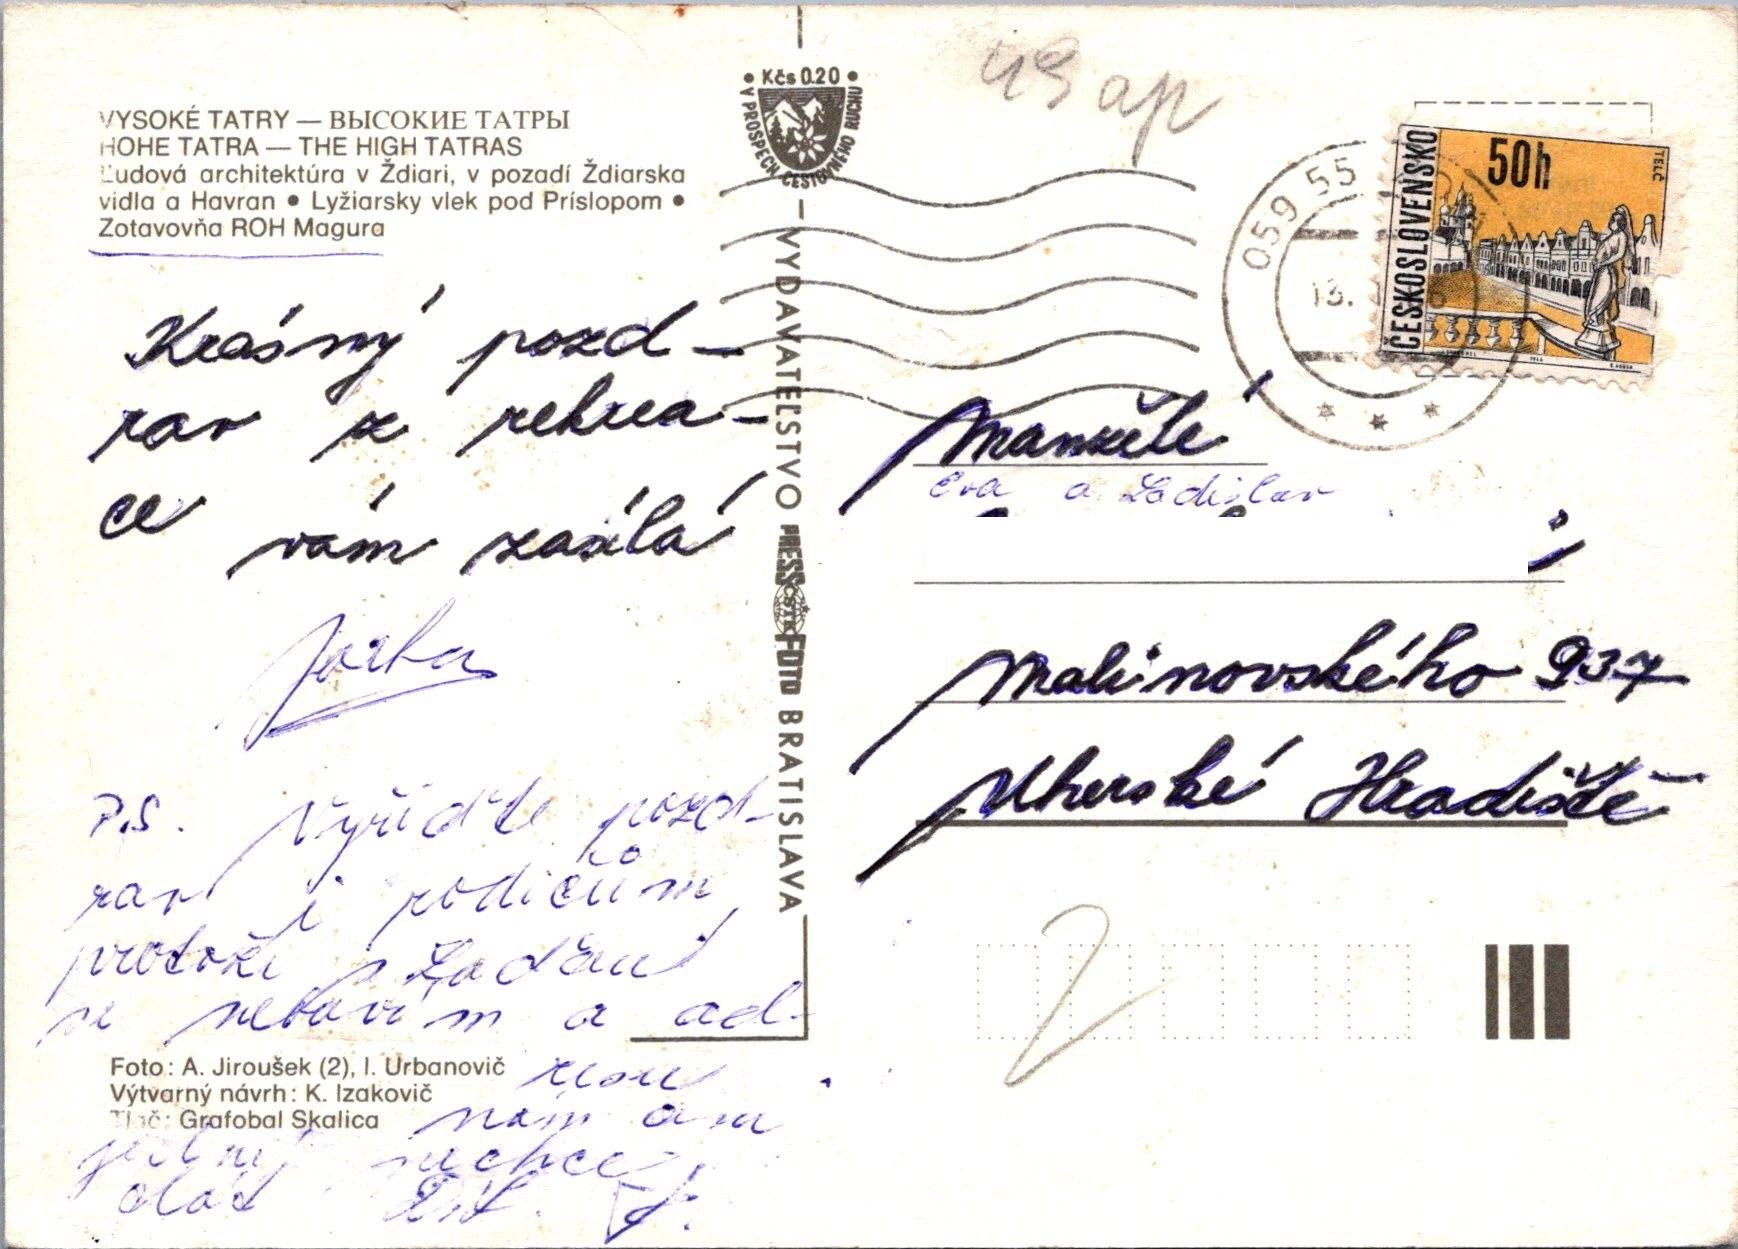 VYSOKÉ TATRY — ВЫСОКИЕ ТАТРЫ
HOHE TATRA — THE HIGH TATRAS
Ľudová architektúra v Ždiari, v pozadí Ždiarska
vidla a Havran • Lyžiarsky vlek pod Príslopom •
Zotavovňa ROH Magura
Krásný pozd-
rav z rekrea-
ce vám zasílá
P.S. Vyřiďte pozd-
rav i rodičům
protože s Laděm
se nebavím a ad-
resu nám ani
jeden nechce
dát
Foto: A. Jiroušek (2), I. Urbanovič
Výtvarný návrh: K. Izakovič
Tlač: Grafobal Skalica
• Kčs 0.20 •
V PROSPECH CESTOVNÉHO RUCHU
VYDAVATEĽSTVO PRESSFOTO BRATISLAVA
ČSTK
059 55
13.
ČESKOSLOVENSKO
50h
TELČ
Manželé
Eva a Ladislav
Malinovského 937
Uherské Hradiště